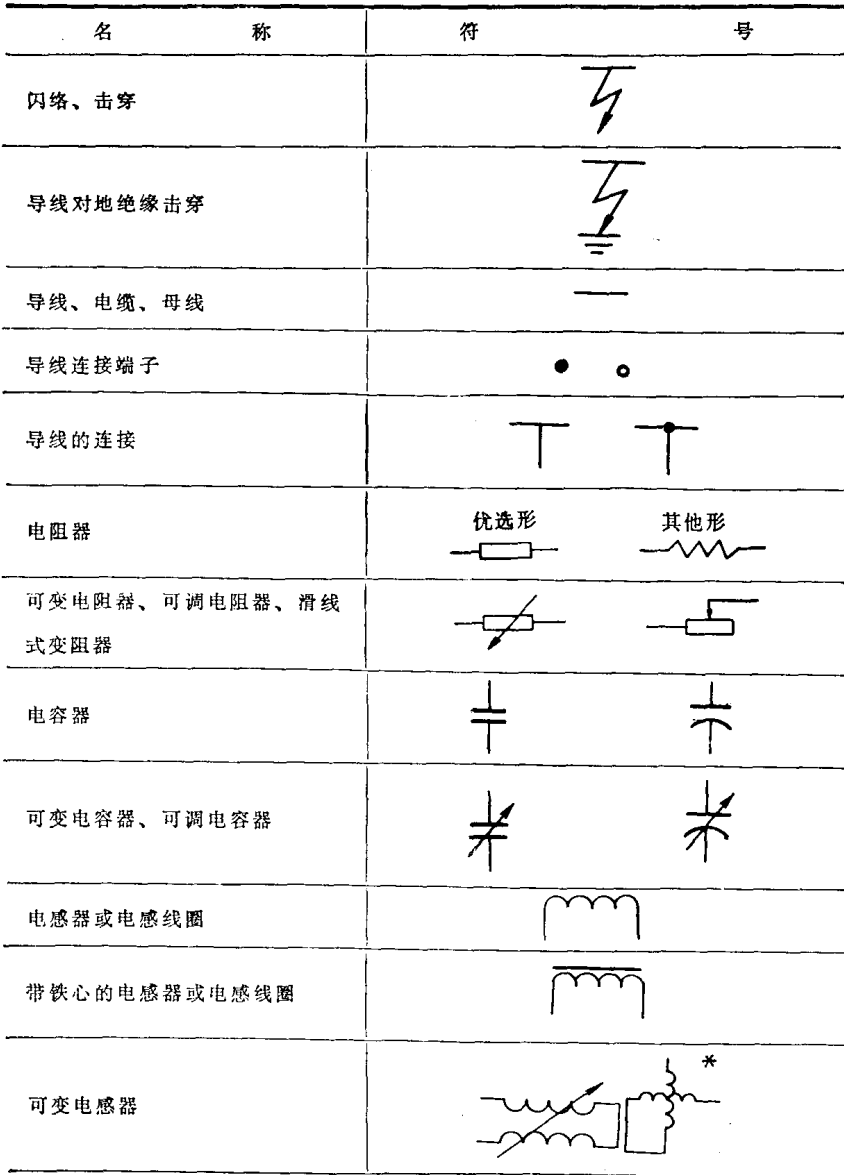 名称 符号
闪络、击穿
导线对地绝缘击穿
导线、电缆、母线
导线连接端子
导线的连接
电阻器 优选形 其他形
可变电阻器、可调电阻器、滑线
式变阻器
电容器
可变电容器、可调电容器
电感器或电感线圈
带铁心的电感器或电感线圈
可变电感器 *